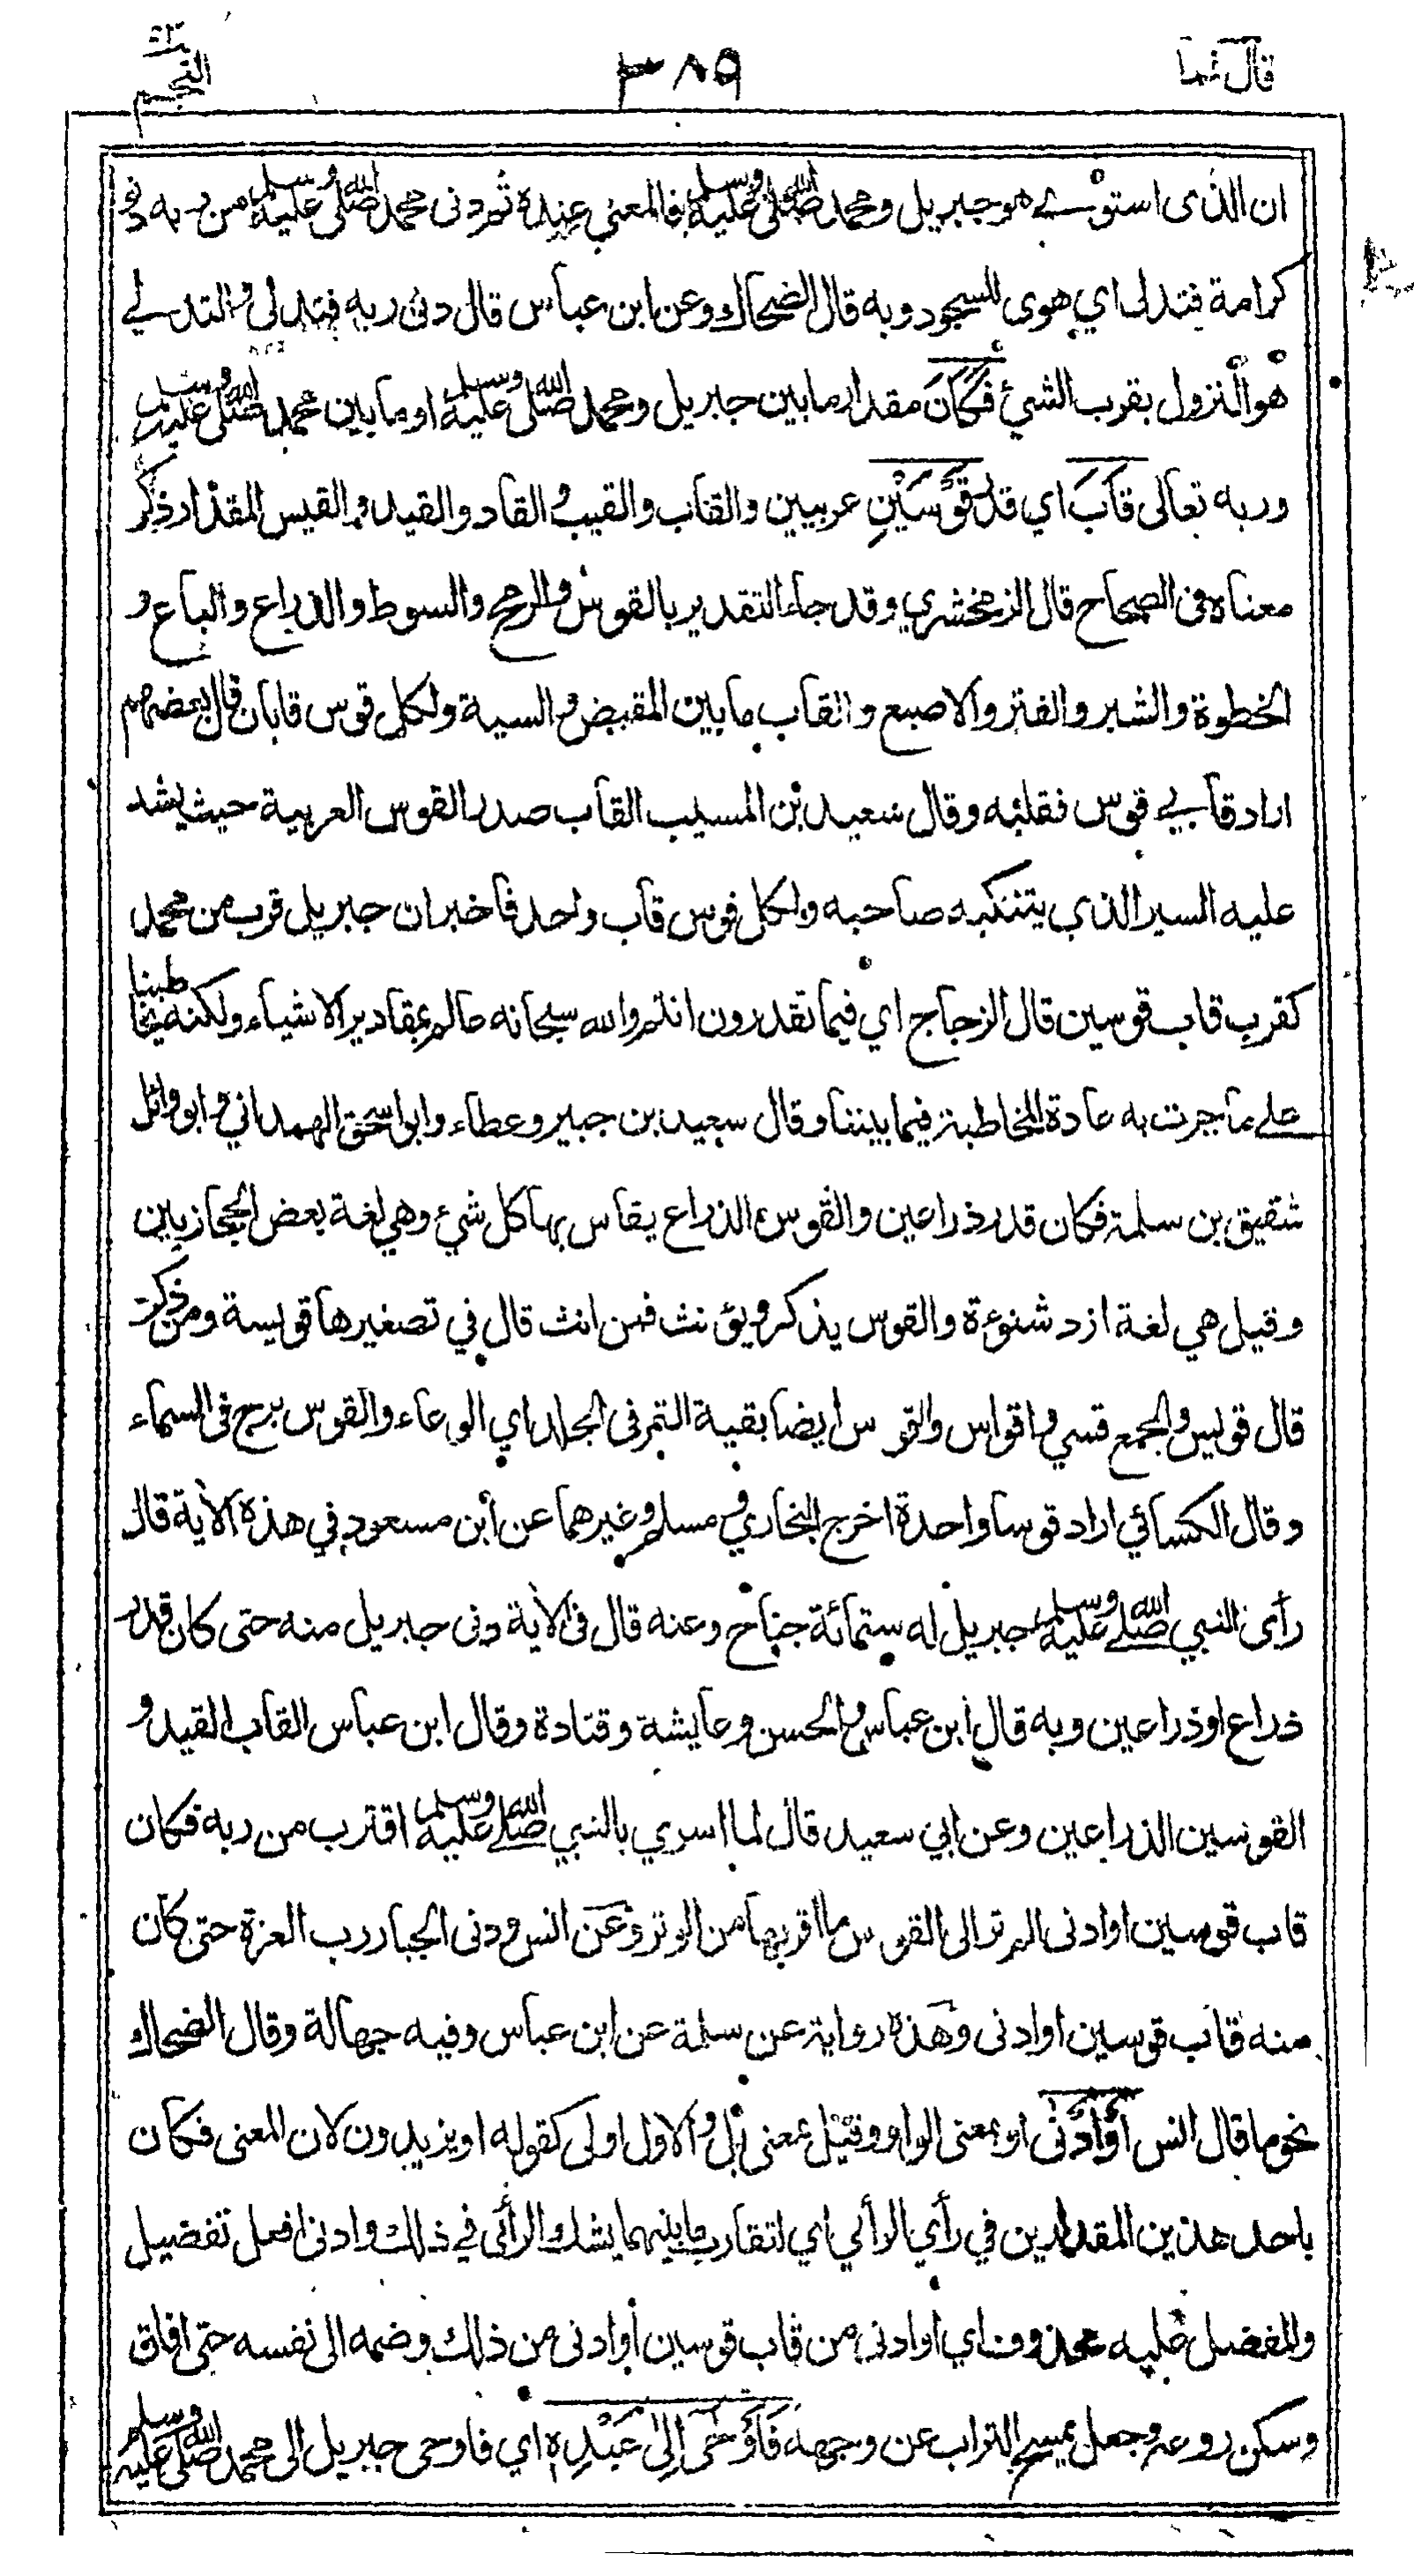 قال فما
٣٨٩
٥٣
النجم
ان الذى استوى هو جبريل ومحمد صلى الله عليه وسلم فالمعنى عنده ثم دنى محمد صلى الله عليه وسلم من ربه دنو
كرامة فتدلى اي هوى للسجود وبه قال الضحاك وعن ابن عباس قال دنى ربه فتدلى والتدلي
هو النزول بقرب الشيء فَكَانَ مقدار ما بين جبريل ومحمد صلى الله عليه وسلم او ما بين محمد صلى الله عليه وسلم
وربه تعالى قَابَ اي قدر قَوْسَيْنِ عربيين والقاب والقيب والقاد والقيد والقيس المقدار ذكر
معناه فى الصحاح قال الزمخشري وقد جاء التقدير بالقوس والرمح والسوط والذراع والباع و
الخطوة والشبر والفتر والاصبع والقاب ما بين المقبض والسية ولكل قوس قابان قال بعضهم
اراد قابي قوس فقلبه وقال سعيد بن المسيب القاب صدر القوس العربية حيث يشد
عليه السير الذي يتنكبه صاحبه ولكل قوس قاب واحد فاخبر ان جبريل قرب من محمد
كقرب قاب قوسين قال الزجاج اي فيما تقدرون انتم والله سبحانه عالم بمقادير الاشياء ولكنه يخاطبنا
على ما جرت به عادة المخاطبة فيما بيننا وقال سعيد بن جبير وعطاء وابو اسحق الهمداني وابو وائل
شقيق بن سلمة فكان قدر ذراعين والقوس الذراع يقاس بها كل شيء وهي لغة بعض الحجازيين
وقيل هي لغة ازد شنوءة والقوس يذكر ويؤنث فمن انث قال في تصغيرها قويسة ومن ذكر
قال قويس والجمع قسي واقواس والقوس ايضا بقية التمر فى الجلة اي الوعاء والقوس برج فى السماء
وقال الكسائي اراد قوسا واحدة اخرج البخاري ومسلم وغيرهما عن ابن مسعود في هذه الآية قال
رأى النبي صلى الله عليه وسلم جبريل له ستمائة جناح وعنه قال فى الآية دنى جبريل منه حتى كان قدر
ذراع او ذراعين وبه قال ابن عباس والحسن وعايشة وقتادة وقال ابن عباس القاب القيد و
القوسين الذراعين وعن ابي سعيد قال لما اسري بالنبي صلى الله عليه وسلم اقترب من ربه فكان
قاب قوسين او ادنى الم تر الى القوس ما اقربها من الوتر وعن انس ودنى الجبار رب العزة حتى كان
منه قاب قوسين او ادنى وهذه رواية عن سلمة عن ابن عباس وفيه جهالة وقال الضحاك
نحو ما قال انس أَوْ أَدْنَى او بمعنى الواو وقيل بمعنى بل والاول اولى كقوله او يزيدون لان المعنى فكان
باحد هذين المقدارين في رأي الرائي اي لتقارب ما بينهما يشك الرائي في ذلك وادنى افعل تفضيل
والمفضل عليه محذوف اي او ادنى من قاب قوسين او ادنى من ذلك وضمه الى نفسه حتى افاق
وسكن روعه وجعل يمسح التراب عن وجهه فَأَوْحَى إِلَى عَبْدِهِ اي فاوحى جبريل الى محمد صلى الله عليه وسلم